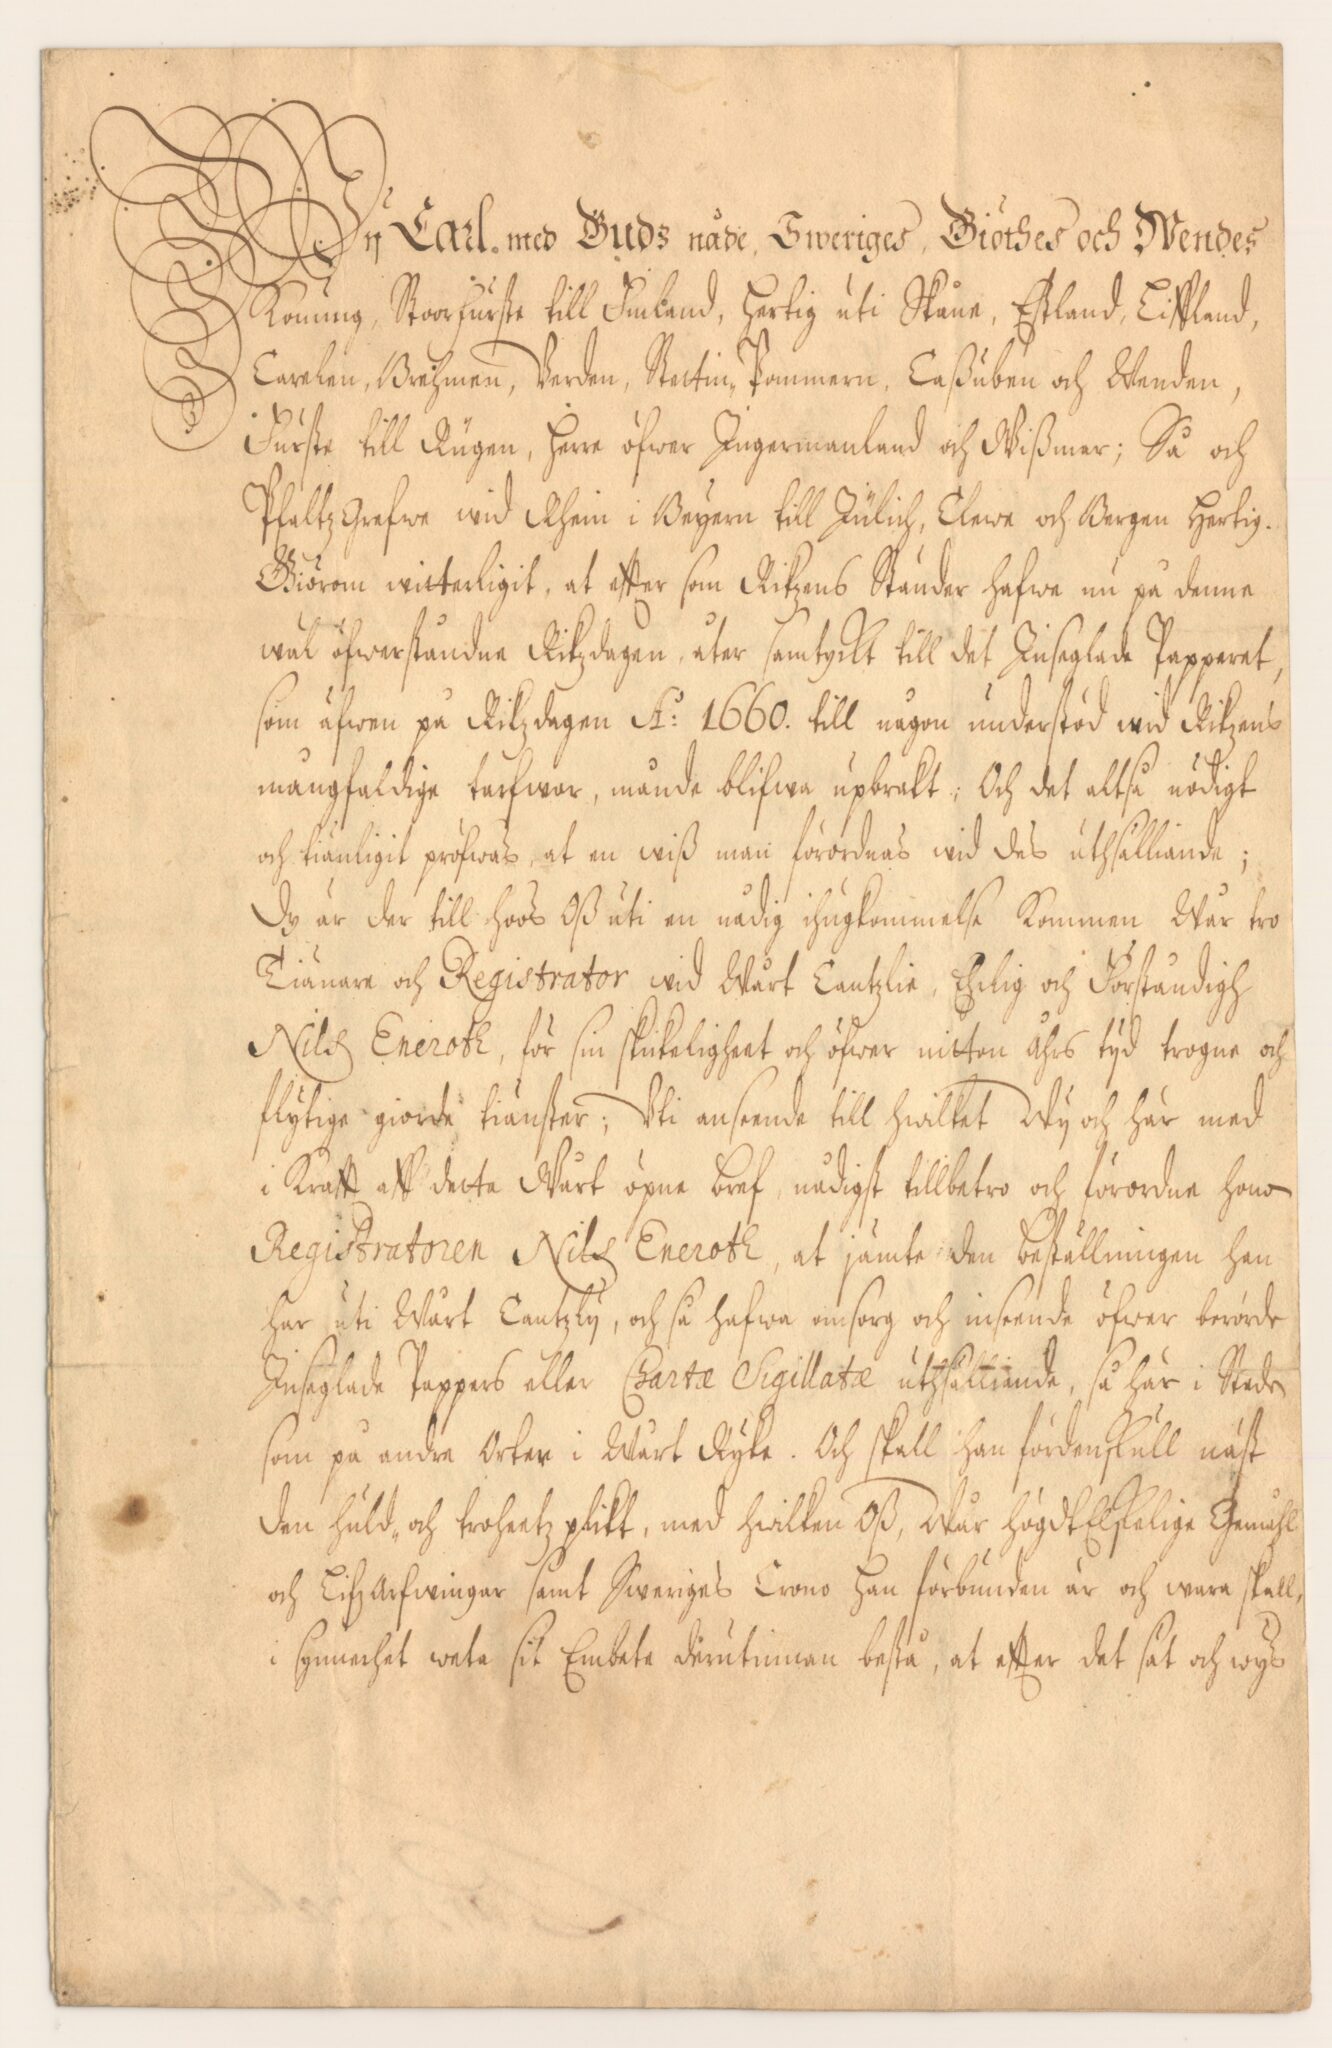 Wy Carl. med Gudz nåde, Sweriges, Giöthes och Wendes
Konung, Stoorfürste till Finland, Hertig uti Skåne, Estland, Liffland,
Carelen, Brehmen, Verden, Stetin-Pommern, Caßuben och Wenden,
Fürste till Rügen, Herre öfwer Ingermanland och Wißmer; Så och
PfaltzGrefwe wid Rhein i Beyern till Jülich, Clewe och Bergen Hertig.
Giörom witterligit, at effter som Rikzens Ständer hafwe nu på denne
wäl öfwerståndne Rikzdagen, åter samtyckt till det Inseglade Papperet,
som äfwen på Rikzdagen A:o 1660. till någon understöd wid Rikzens
mångfaldige tarfwor, månde blifwa upbrakt; Och det altså nödigt
och tiänligit pröfwas, at en wiß man förordnas wid des uthsälliande;
Dy är der till hoos Oß uti en nådig ihugkommelse kommen Wår tro
Tiänare och Registrator wid Wårt Cantzlie, Ehrlig och Förståndigh
Nilß Eneroth, för sin skickeligheet och öfwer nitton åhrs tyd trogne och
flytige giorde tiänster; Uti anseende till hwilket Wy och här med
i Krafft aff detta Wårt öpne bref, nådigst tillbetro och förordne hono
Registratoren Nilß Eneroth, at jämte den beställningen han
har uti Wårt Cantzly, och så hafwa omsorg och inseende öfwer berörde
Inseglade Pappers eller Chartæ Sigillatæ uthsälliande, så här i Staden
som på andre Orter i Wårt Ryke. Och skall han fördenskull näst
den huld- och troheetz plikt, med hwilken Oß, Wår högdtElskelige Gemåhl
och LifzArfwingar samt Sweriges Crono han förbunden är och wara skall,
i synnerhet weta sit Embete derutinnan bestå, at effter det sät och wys